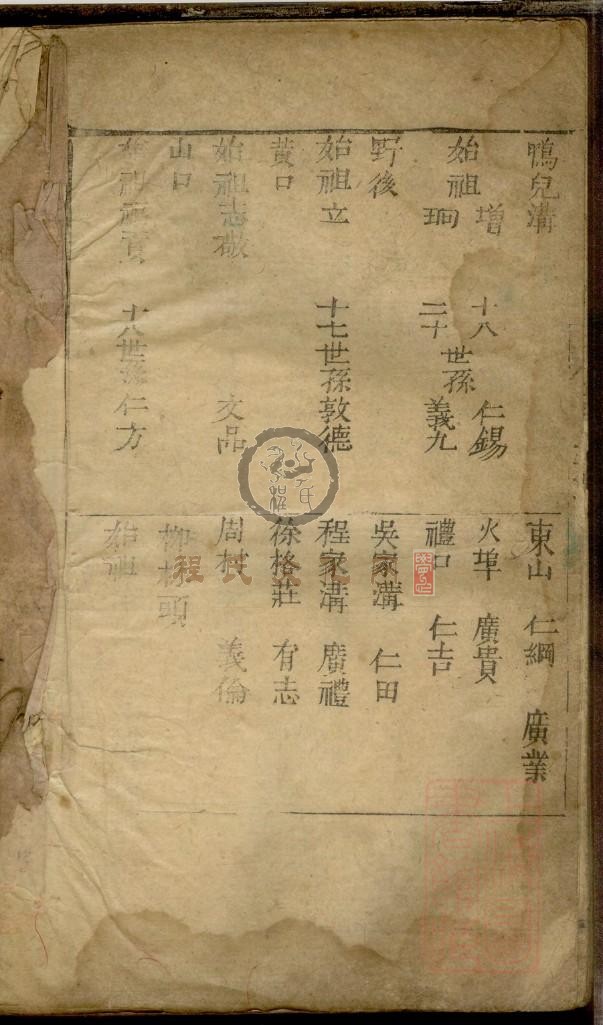 鴨兒溝
始祖 增 珣 十八 二十 世孫 仁錫 義九
野後
始祖立 十七世孫敦德
黄口
始祖志敬 文品
山口
始祖 十八世孫仁方
東山 仁綱 廣業
火埠 廣貴
禮口 仁吉
吳家溝 仁田
程家溝 廣禮
徐格莊 有志
周村 義倫
柳 頭
始祖
程氏